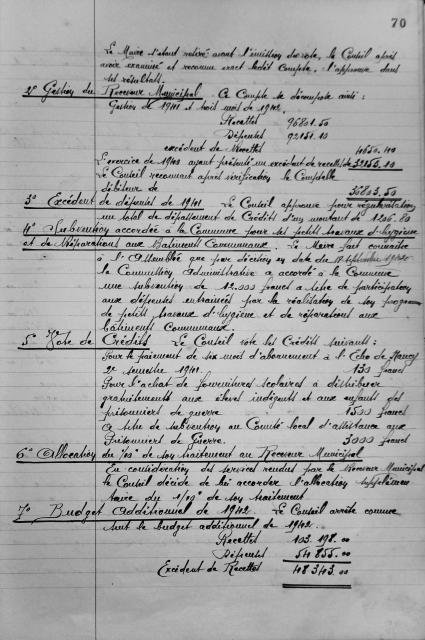 70
Le Maire s'étant retiré avant l'émission du vote, le Conseil après
avoir examiné et reconnu exact ledit Compte, l'approuve dans
ses résultats.
2° Gestion du Receveur Municipal. Ce Compte se décompte ainsi:
Gestion de 1941 et huit mois de 1942.
Recettes 96801.50
Dépenses 92151.10
excédent de Recettes 4650.40
L'exercice de 1940 ayant présenté un excédent de recettes de 32153.10
Le Conseil reconnait après vérification le Comptable
débiteur de 36803.50
3° Excédent de dépenses de 1941. Le Conseil approuve pour régularisation
un total de dépassement de Crédits d'un montant de 1206.80
4° Subvention accordée à la Commune pour ses petits travaux d'hygiène
et de Réparations aux Bâtiments Communaux. Le Maire fait connaître
à l'Assemblée que par décision en date du 17 Septembre
la Commission Administrative a accordé à la Commune
une subvention de 12.000 francs à titre de participation
aux dépenses entrainées par la réalisation de son programme
de petits travaux d'hygiène et de réparations aux
bâtiments Communaux.
5° Vote de Crédits Le Conseil vote les Crédits suivants:
Pour le paiement de six mois d'abonnement à l'Echo de Nancy
2e semestre 1941. 130 francs
Pour l'achat de fournitures scolaires à distribuer
gratuitement aux élèves indigents et aux enfants des
prisonniers de guerre 1500 francs
A titre de subvention au Comité local d'assistance aux
Prisonniers de Guerre. 3000 francs
6° Allocation du /10° de son traitement au Receveur Municipal
En considération des services rendus par le Receveur Municipal
le Conseil décide de lui accorder l'allocation supplémen
taire du 1/10° de son traitement
7° Budget Additionnel de 1942. Le Conseil arrête comme
suit le budget additionnel de 1942.
Recettes 103.198.00
Dépenses 54.855.00
Excédent de Recettes 48343.00